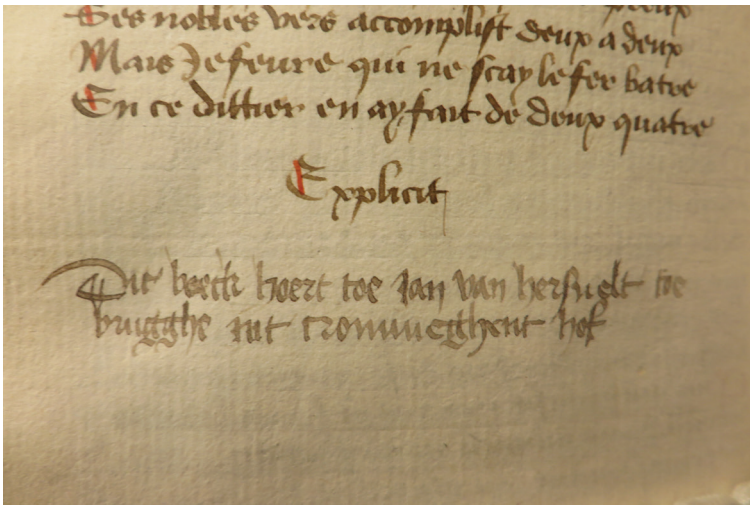 Ses nobles vers accomplist deux a deux
Mais Jefeure qui ne scay le fer batre
En ce dittier en ay fait de deux quatre
Explicit
Dit boeck hoert toe Jan van hersuelt toe
brugghe int crommeghent hof